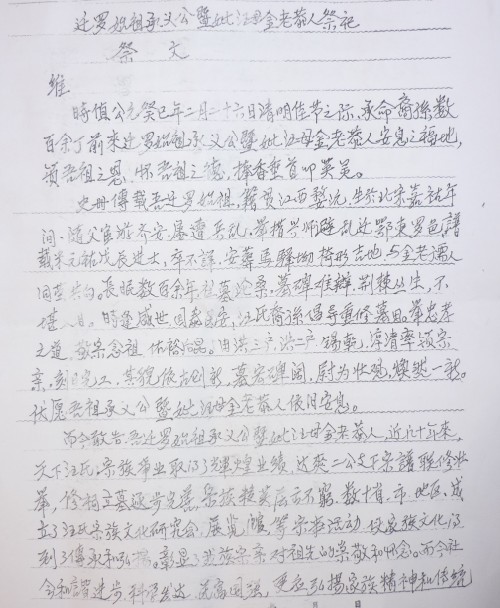 迁罗始祖承义公暨妣汪母金老恭人祭祀
祭 文
维
時值公元癸巳年二月二十六日清明佳节之际、承命裔孫数
百余丁前来迁罗始祖承义公暨妣江母金老恭人安息之福地,
颂吾祖之恩、怀吾祖之德,捧香垂首叩英灵。
史册傳载吾迁罗始祖,籍贯江西婺沅,生於北宋嘉祐年
间·随父宦游齐安屡遭兵乱,举指兴师避乱迁鄂東罗邑譜
载宋元祐戊辰進士,卒不詳,安葬馬驛坳椅形吉地,与金老孺人
同茔共向。長眠数百余年祖墓沧桑,墓碑难辨,荆棘丛生,不
堪入目。時逢盛世国泰民安,汪氏裔孫倡导重修墓园。举忠孝
之道,敬宗念祖 佑啓后昆。由洪三户、洪二户 锡乾,淳清率领宗
亲,刻日完工,其貌依古创新,墓宏碑阔,蔚为壮观,焕然一新。
伏愿吾祖承义公暨妣汪母金老恭人依旧安息。
而今敬告吾迁罗始祖承义公暨妣汪母金老恭人,近几十年来,
天下汪氏宗族事业取得了辉煌业績,达爽二公支下宗譜联修壮
举,修祠立墓逐步完善,宗族精英层出不窮。数十省、市、地区,成
立了汪氏宗族文化研究会,展览馆,等宗事活动,使宗族文化得
到了傳承和弘揚,彰显了我族宗亲对祖先的崇敬和怀念。而今社
会和諧进步,科学发达,民富国强,更应弘揚家族精神和傳统